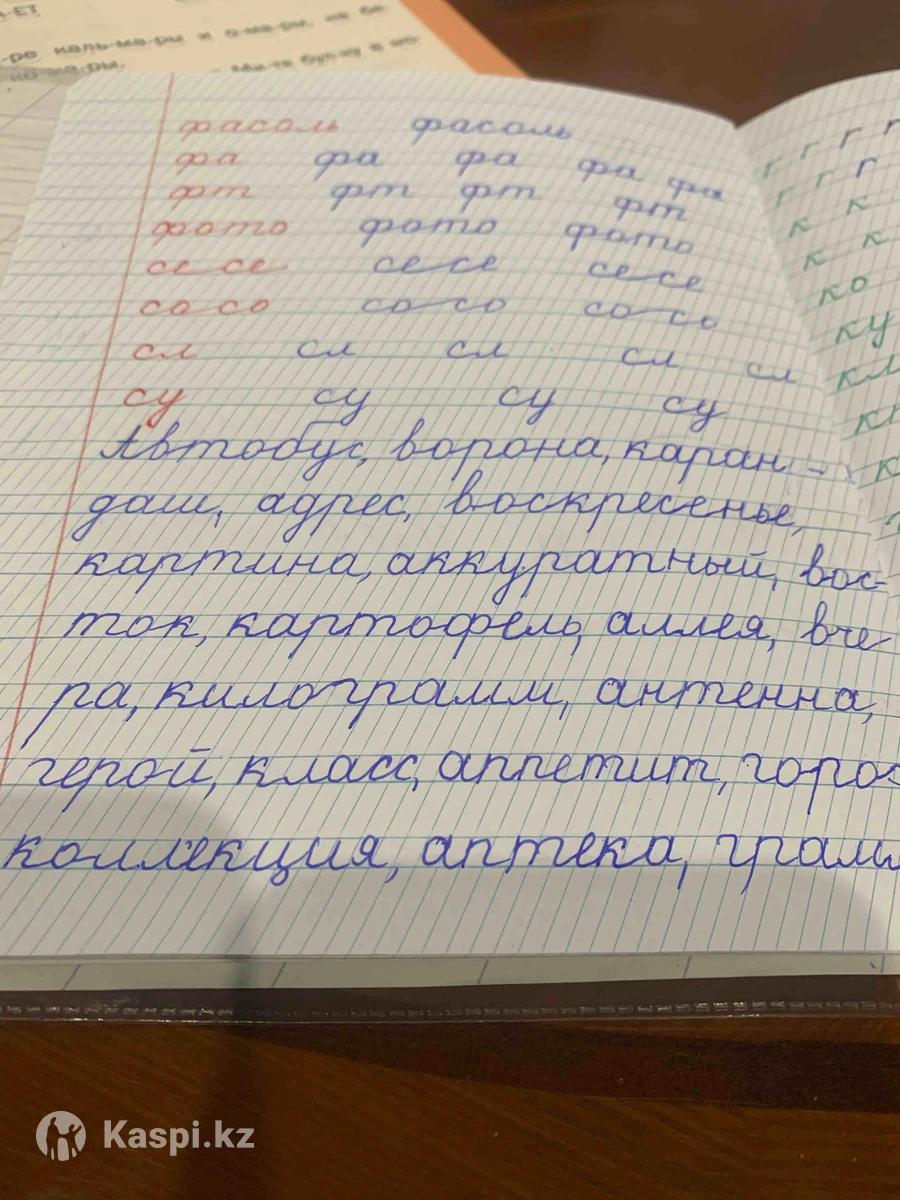 -ЕТ
-ре каль-ма-ры и о-ма-ры, на бе-
ко-ма-ры. Ми-тя бул-ку в мо-
фасоль фасоль
фа фа фа фа фа
фт фт фт фт
фото фото фото
се се се се се се
со со со со со со
сл сл сл сл сл
су су су су
Автобус, ворона, каран-
даш, адрес, воскресенье,
картина, аккуратный, вос-
ток, картофель, аллея, вче
ра, килограмм, антенна,
герой, класс, аппетит, горо
коллекция, аптека, грам
г г г г
г г г
к к
к к
ко
ку
кл
к
Kaspi.kz